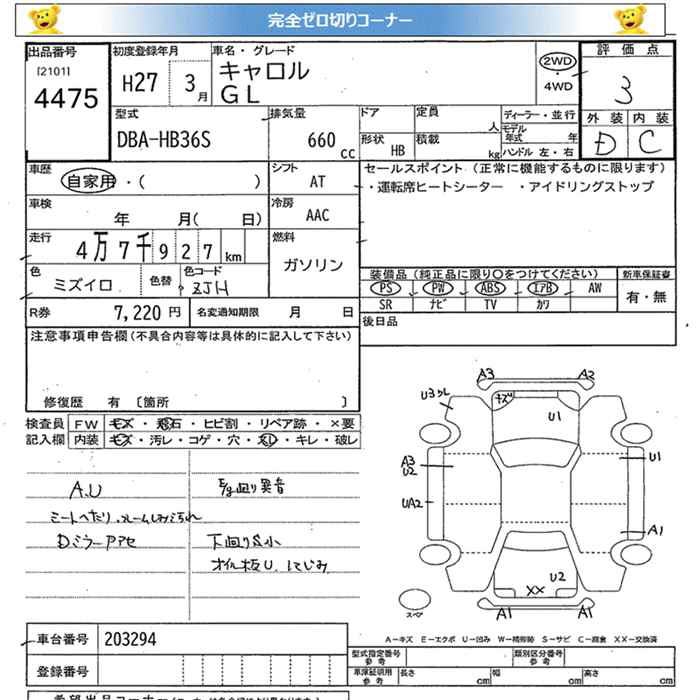 完全ゼロ切りコーナー
出品番号
[2101]
4475
初度登録年月
H27 3月
車名・グレード
キャロル
GL
2WD
・
4WD
評価点
3
外装 内装
D C
型式
DBA-HB36S
排気量
660 cc
ドア
定員 人
形状 HB
積載 kg
ディーラー・並行
モデル年式 年
ハンドル 左・右
車歴
自家用・( )
シフト
AT
セールスポイント (正常に機能するものに限ります)
・運転席ヒートシーター ・アイドリングストップ
車検
年 月( 日)
冷房
AAC
走行
4万7千927km
燃料
ガソリン
色
ミズイロ
色替
色コード
ZJH
装備品 (純正品に限り○をつけてください)
新車保証書
PS PW ABS エアB AW
有・無
SR ナビ TV カワ
R券 7,220円
名変通知期限 月 日
後日品
注意事項申告欄 (不具合内容等は具体的に記入して下さい)
修復歴 有 [箇所 ]
検査員
記入欄
FW キズ・飛石・ヒビ割・リペア跡・×要
内装 キズ・汚レ・コゲ・穴・スレ・キレ・破レ
A.U
E/g廻り異音
シートへたり
Dミラーアセ
下廻りS小
A3 A2
U3クレ
キズ
U1
A3
U2
U1
UA2
A1
U2
XX
A1 A1
スペア
A-キズ E-エクボ U-凹み W-補修跡 S-サビ C-腐食 XX-交換済
車台番号 203294
登録番号
型式指定番号
参考
類別区分番号
参考
車体証明用
参考
長さ cm
幅 cm
高さ cm
希望出品コーナー